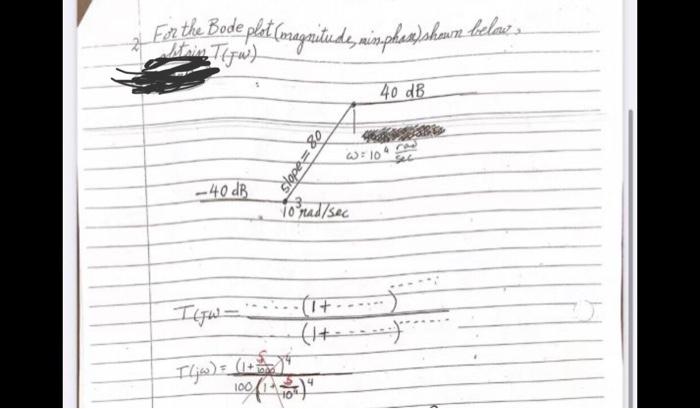 2 For the Bode plot (magnitude, min. phase) shown below,
obtain T(jω)
40 dB
slope = 80
ω = 10⁴ rad/sec
-40 dB
10³ rad/sec
T(jω = ······ (1+ ······) ······
(1+ ······) ······
T(jω) = (1+ s/1000)⁴
100 (1+ s/10⁴)⁴